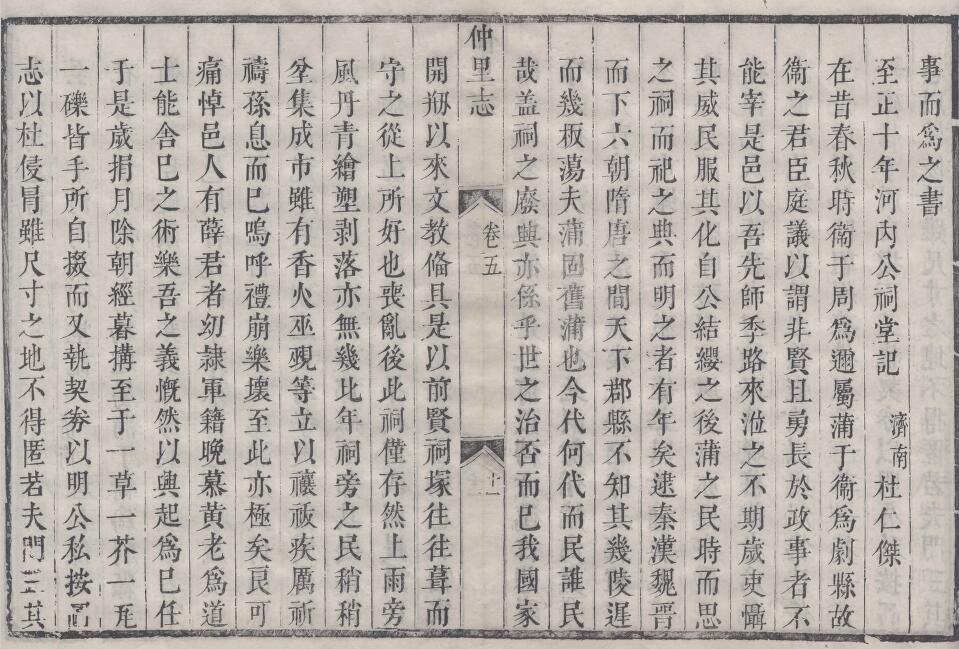 事而爲之書
至正十年河內公祠堂記 濟南 杜仁傑
在昔春秋時衛于周爲邇屬蒲于衛爲劇縣故
衛之君臣庭議以謂非賢且勇長於政事者不
能宰是邑以吾先師季路來涖之不期歲吏懾
其威民服其化自公結纓之後蒲之民時而思
之祠而祀之典而明之者有年矣逮秦漢魏晋
而下六朝隋唐之間天下郡縣不知其幾陵遲
而幾板蕩夫蒲固舊蒲也今代何代而民誰民
哉盖祠之廢興亦係乎世之治否而已我國家
仲里志 卷五 十一
開刱以來文教偹具是以前賢祠塚往往葺而
守之從上所好也喪亂後此祠僅存然上雨旁
風丹青繪塑剥落亦無幾比年祠旁之民稍稍
坌集成市雖有香火巫覡等立以禳祓疾厲祈
禱孫息而巳嗚呼禮崩樂壞至此亦極矣良可
痛悼邑人有薛君者幼隷軍籍晚慕黄老爲道
士能舍巳之術樂吾之義慨然以興起爲巳任
于是歲捐月除朝經暮搆至于一草一芥一瓦
一礫皆手所自掇而又執契劵以明公私按
志以杜侵冐雖尺寸之地不得匿若夫門三其